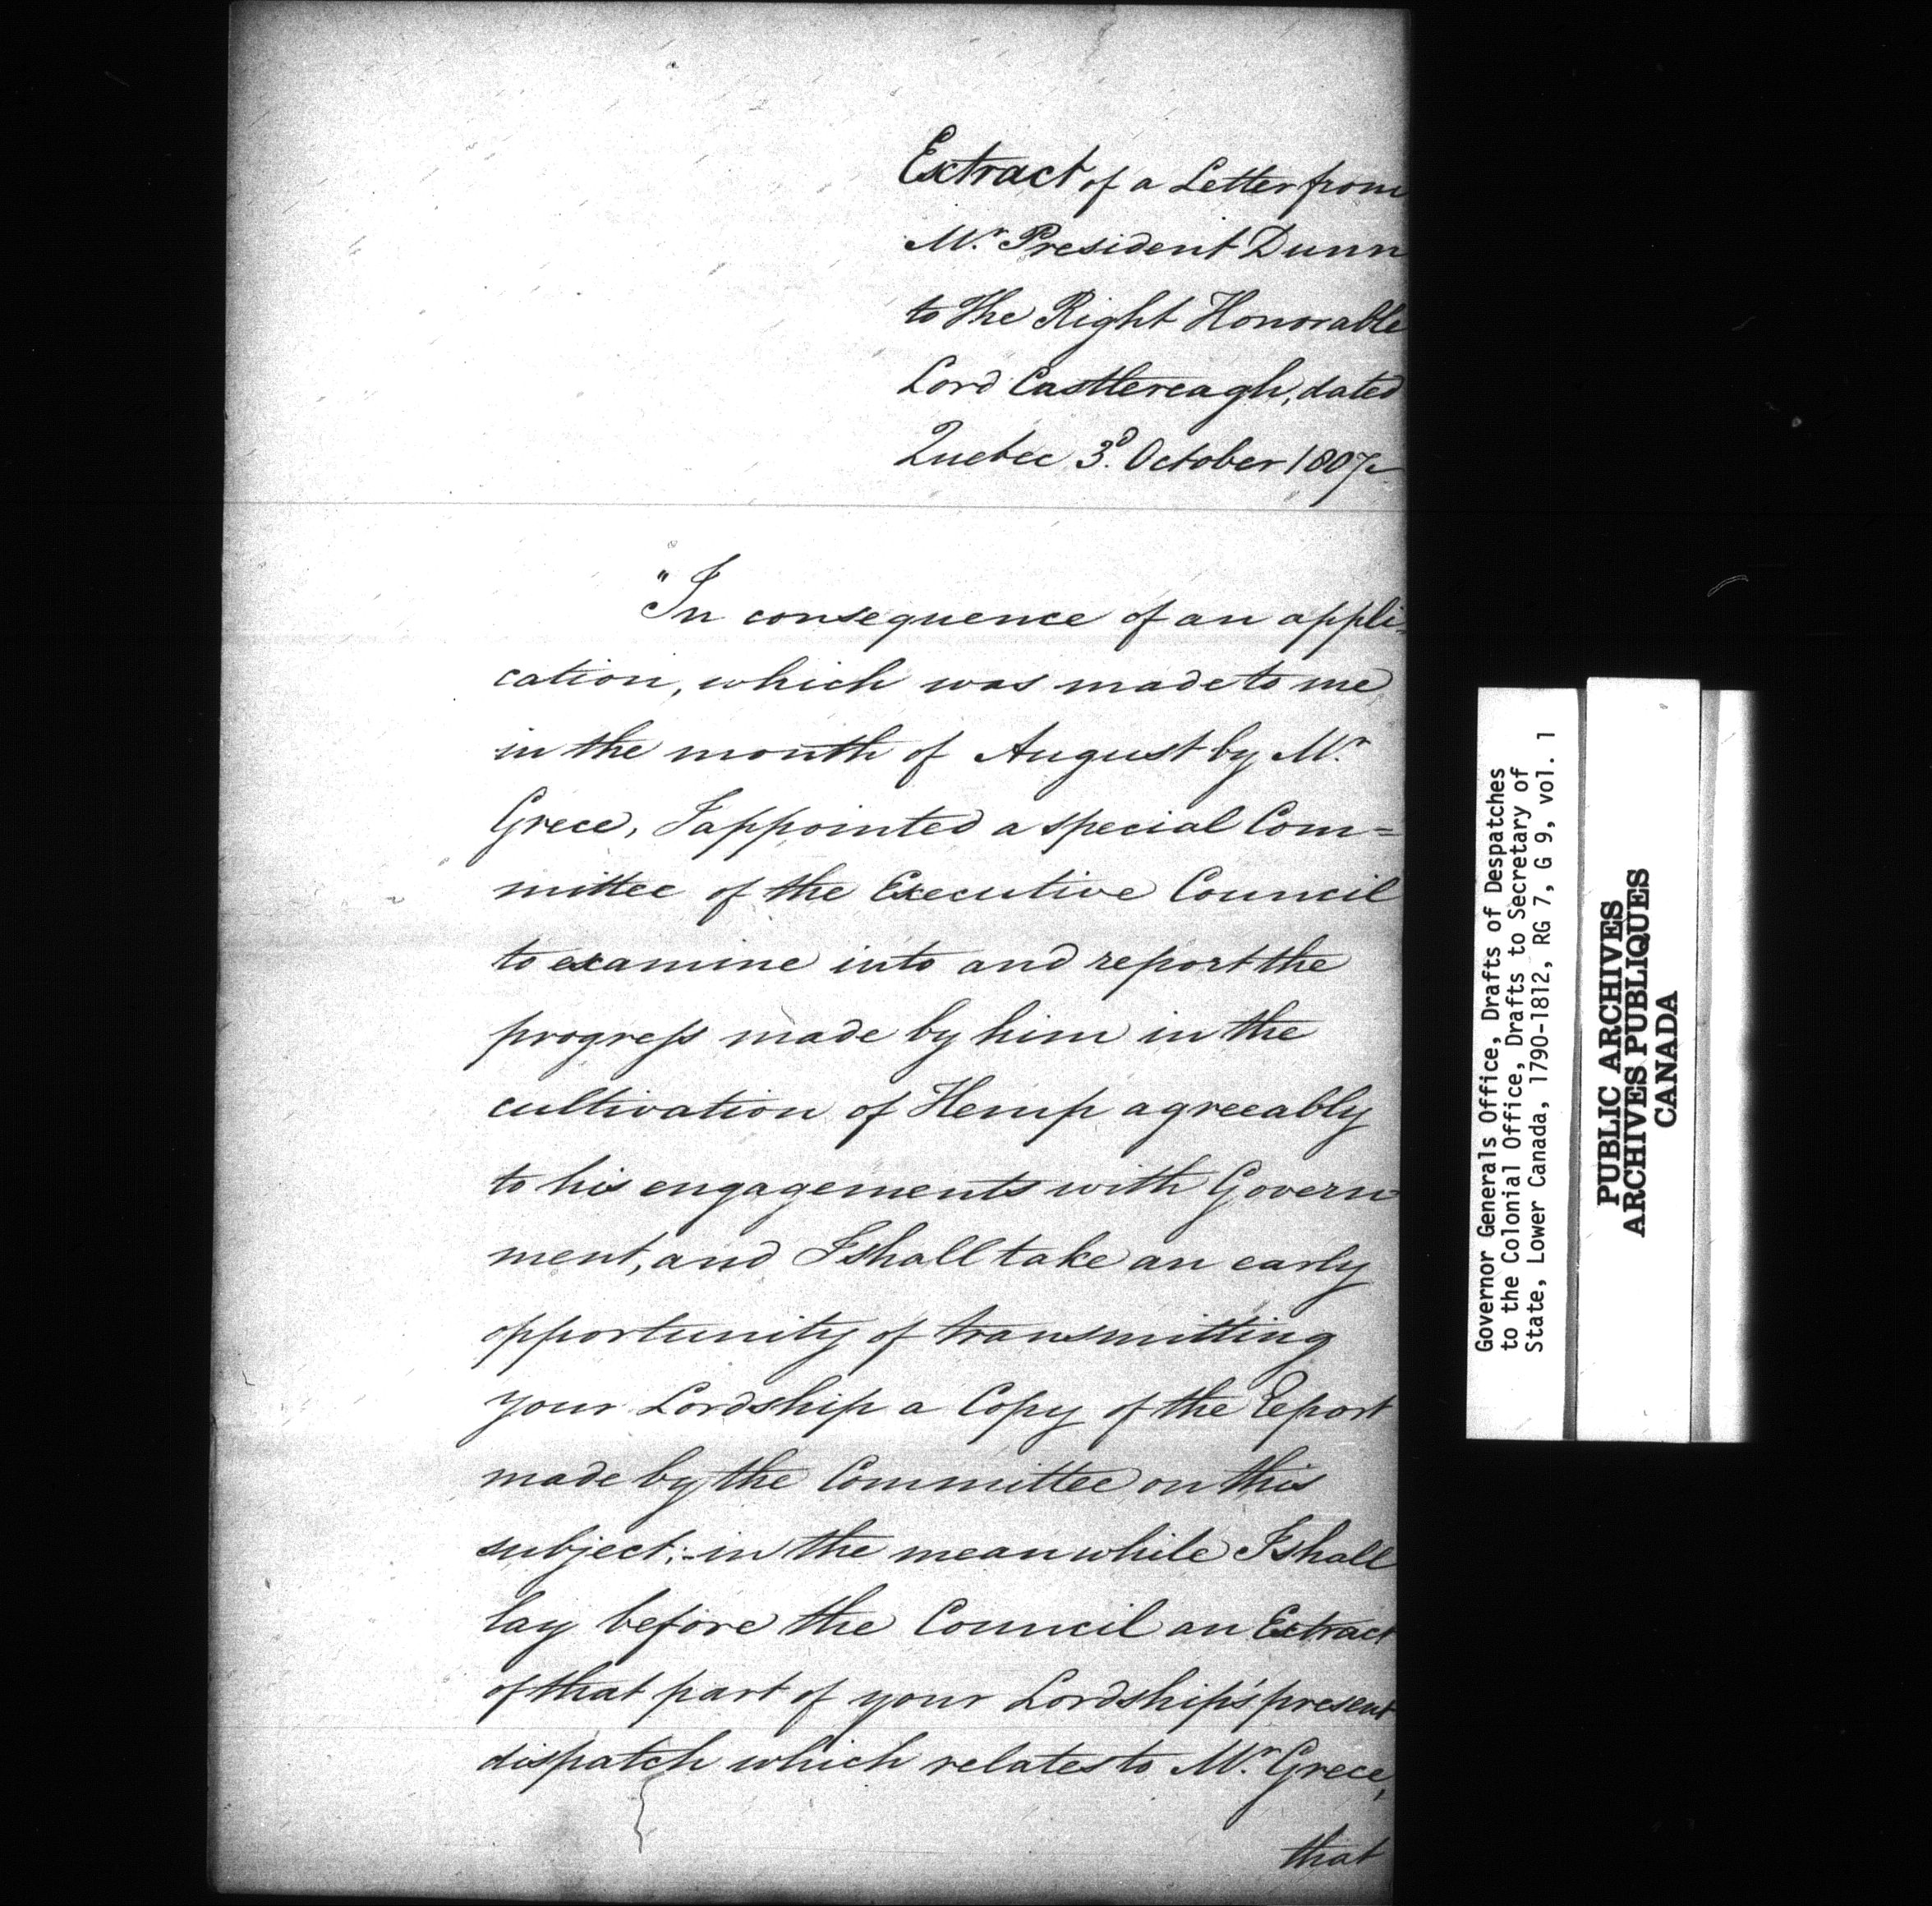 Extract of a Letter from
Mr. President Dunn
to The Right Honorable
Lord Castlereagh, dated
Quebec 3d. October 1807
"In consequence of an appli-
cation, which was made to me
in the month of August by Mr.
Grece, I appointed a special Com=
mittee of the Executive Council
to examine into and report the
progress made by him in the
cultivation of Hemp agreeably
to his engagements with Govern=
ment, and I shall take an early
opportunity of transmitting
your Lordship a Copy of the Report
made by the Committee on this
subject;-in the mean while I shall
lay before the Council an Extract
of that part of your Lordship's present
dispatch which relates to Mr. Grece,
that
Governor Generals Office, Drafts of Despatches
to the Colonial Office, Drafts to Secretary of
State, Lower Canada, 1790-1812, RG 7, G 9, vol. 1
PUBLIC ARCHIVES
ARCHIVES PUBLIQUES
CANADA